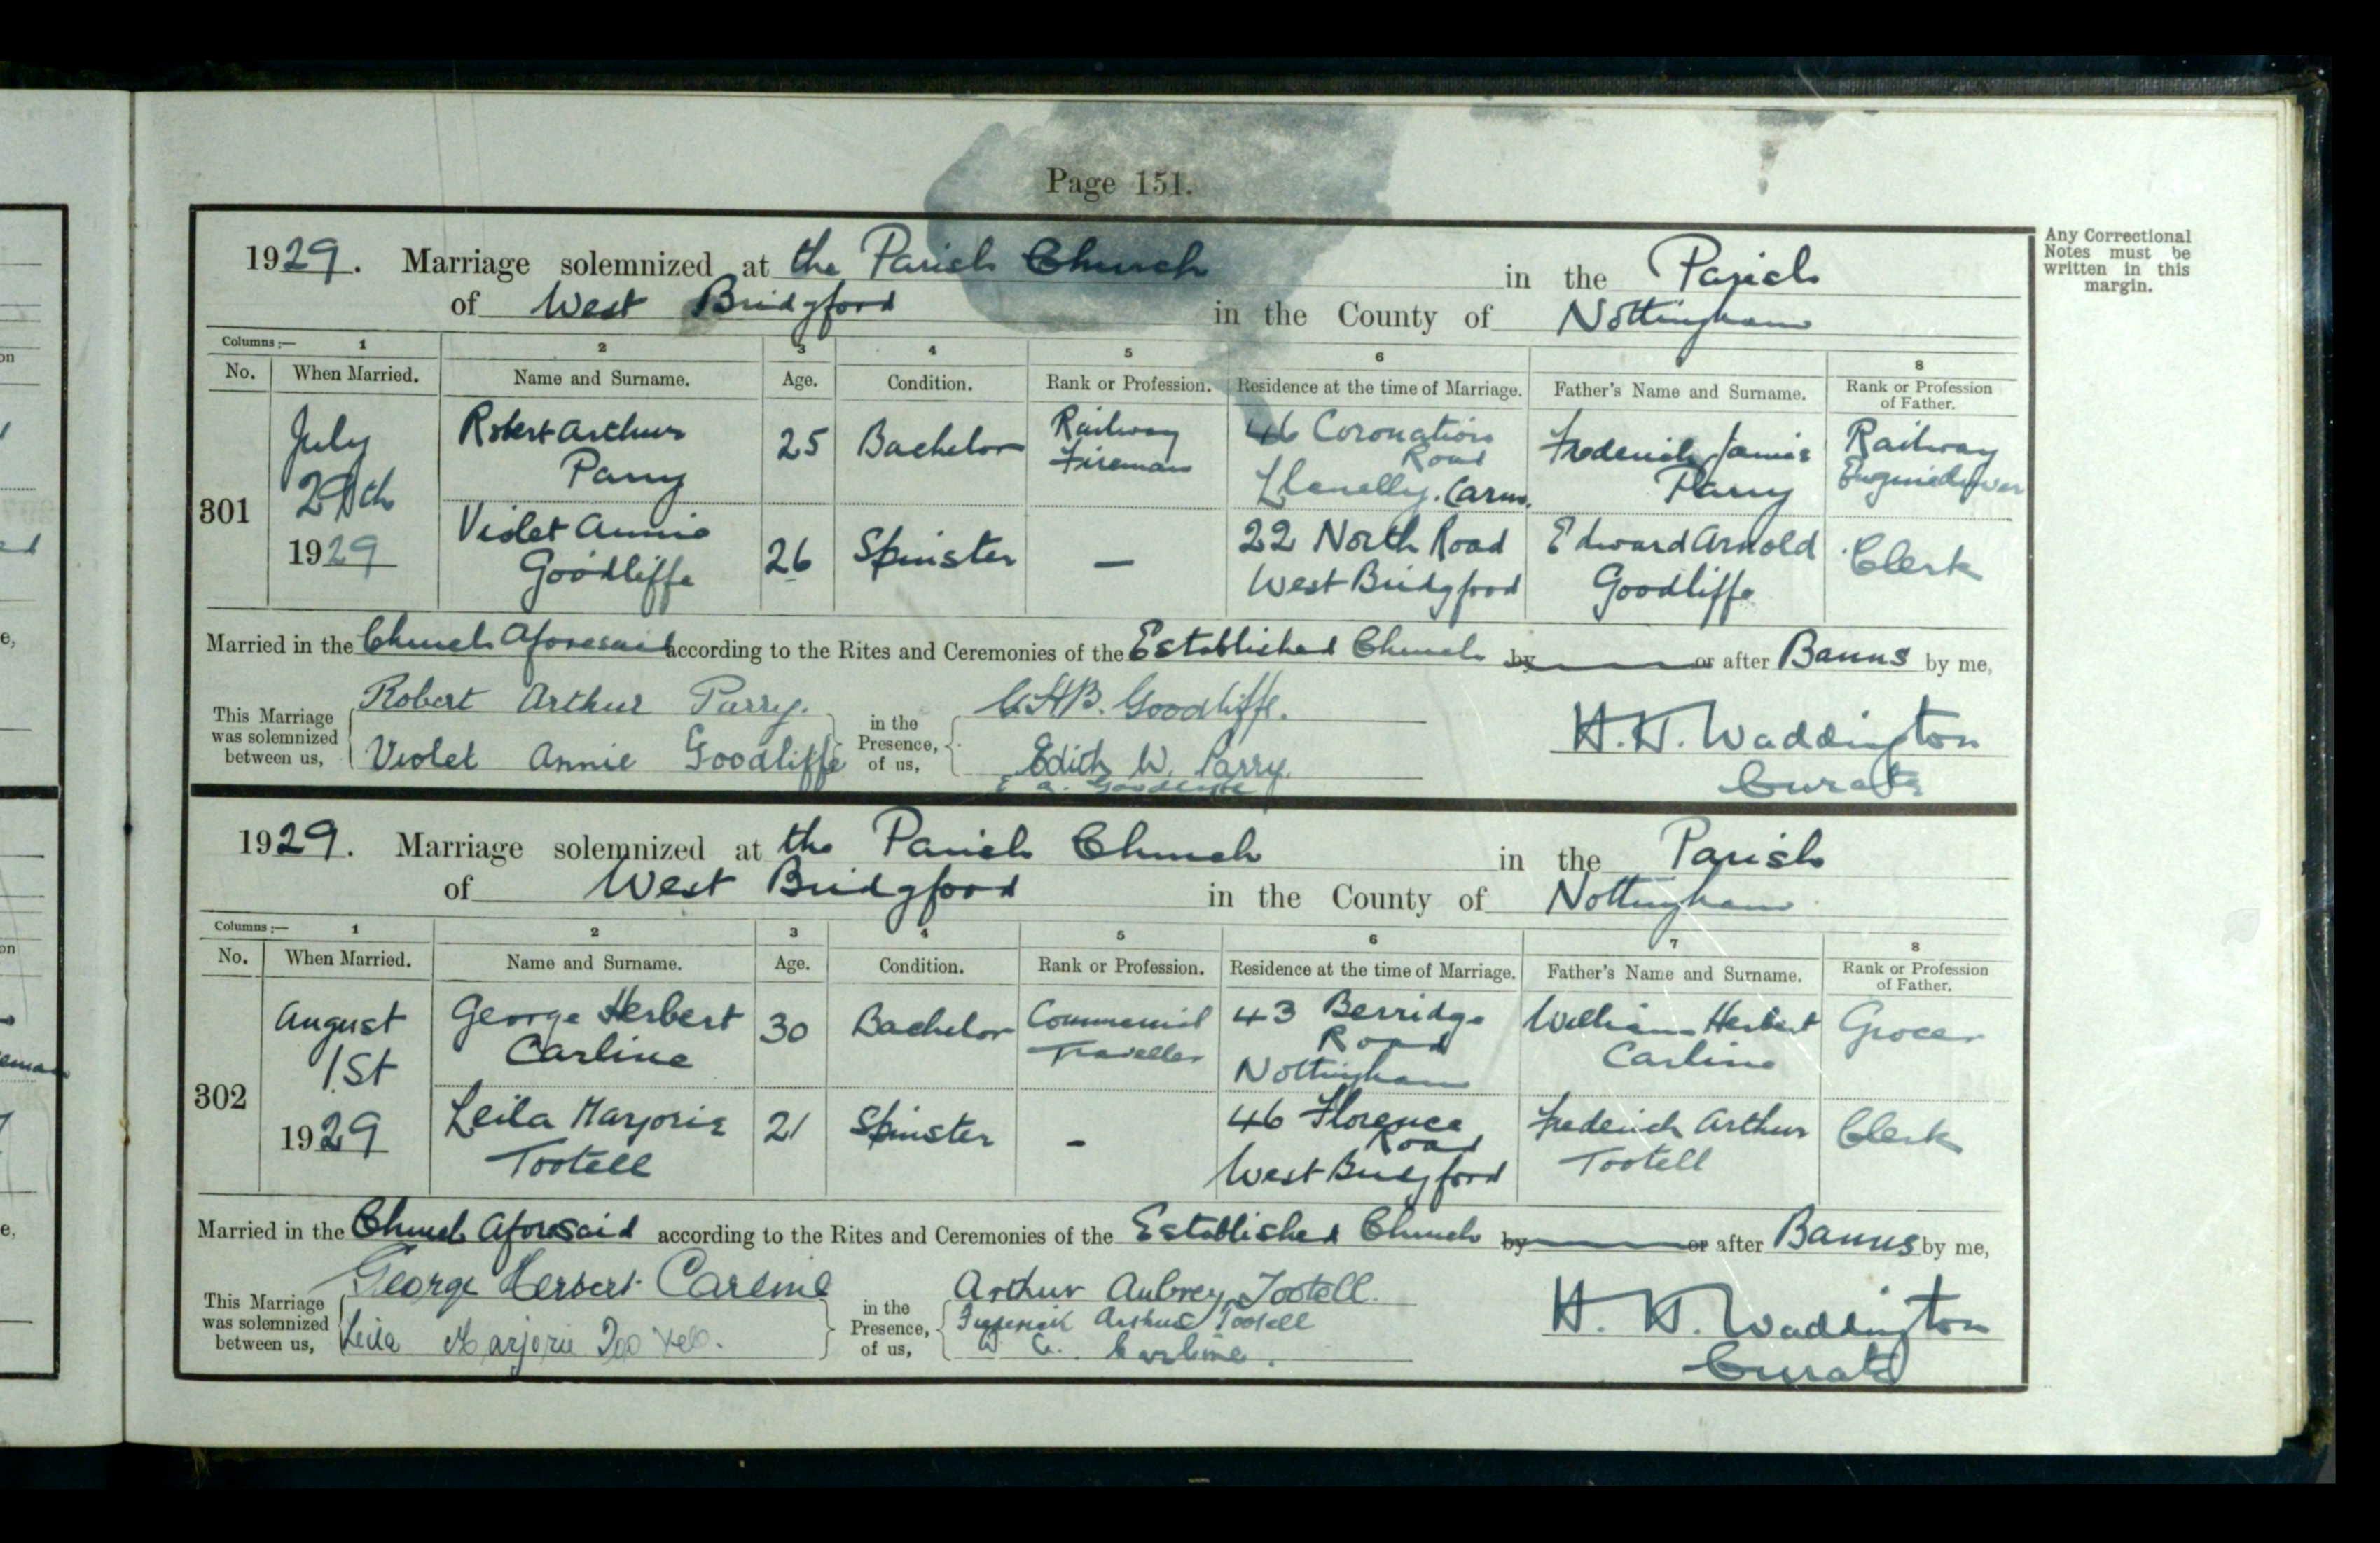 Page 151.
1929. Marriage solemnized at the Parish Church in the Parish
of West Bridgford in the County of Nottingham
Any Correctional
Notes must be
written in this
margin.
Columns :— 1 2 3 4 5 6 8
No. When Married. Name and Surname. Age. Condition. Rank or Profession. Residence at the time of Marriage. Father's Name and Surname. Rank or Profession
of Father.
301
July
1929
Robert Arthur
Parry
25
Bachelor
Railway
Fireman
46 Coronation
Road
Llanelly. Carm.
Frederick James
Parry
Railway
Enginedriver
Violet Annie
Goodliffe
26
Spinster
—
22 North Road
West Bridgford
Edward Arnold
Goodliffe
Clerk
Married in the Church Aforesaid according to the Rites and Ceremonies of the Established Church by or after Banns by me,
This Marriage
was solemnized
between us,
Robert Arthur Parry.
Violet Annie Goodliffe
in the
Presence,
of us,
Goodliffe.
Edith W. Parry.
Goodliffe
H. W. Waddington
Curate
1929. Marriage solemnized at the Parish Church in the Parish
of West Bridgford in the County of Nottingham
Columns :— 1 2 3 4 5 6 7 8
No. When Married. Name and Surname. Age. Condition. Rank or Profession. Residence at the time of Marriage. Father's Name and Surname. Rank or Profession
of Father.
302
August
1st
1929
George Herbert
Carline
30
Bachelor
Commercial
Traveller
43 Berridge
Road
Nottingham
William Herbert
Carline
Grocer
Leila Marjorie
Tootell
21
Spinster
-
46 Florence
Road
West Bridgford
Frederick Arthur
Tootell
Clerk
Married in the Church Aforesaid according to the Rites and Ceremonies of the Established Church by or after Banns by me,
This Marriage
was solemnized
between us,
George Herbert Carline
Leila Marjorie Tootell.
in the
Presence,
of us,
Arthur Aubrey Tootell.
Frederick Arthur Tootell
Carline.
H. W. Waddington
Curate